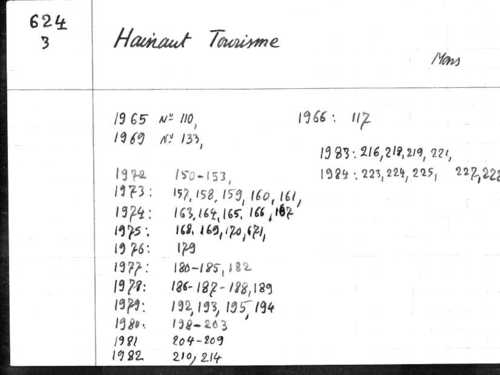 624
3
Hainaut Tourisme
Mons
1965 N° 110,
1966: 117
1969 N° 133,
1983: 216, 218, 219, 221,
1984: 223, 224, 225, 227, 228
1972 150-153,
1973: 157, 158, 159, 160, 161,
1974: 163, 164, 165, 166, 167
1975: 168, 169, 170, 671,
1976: 179
1977: 180-185, 182
1978: 186-187-188, 189
1979: 192, 193, 195, 194
1980: 198-203
1981 204-209
1982 210, 214